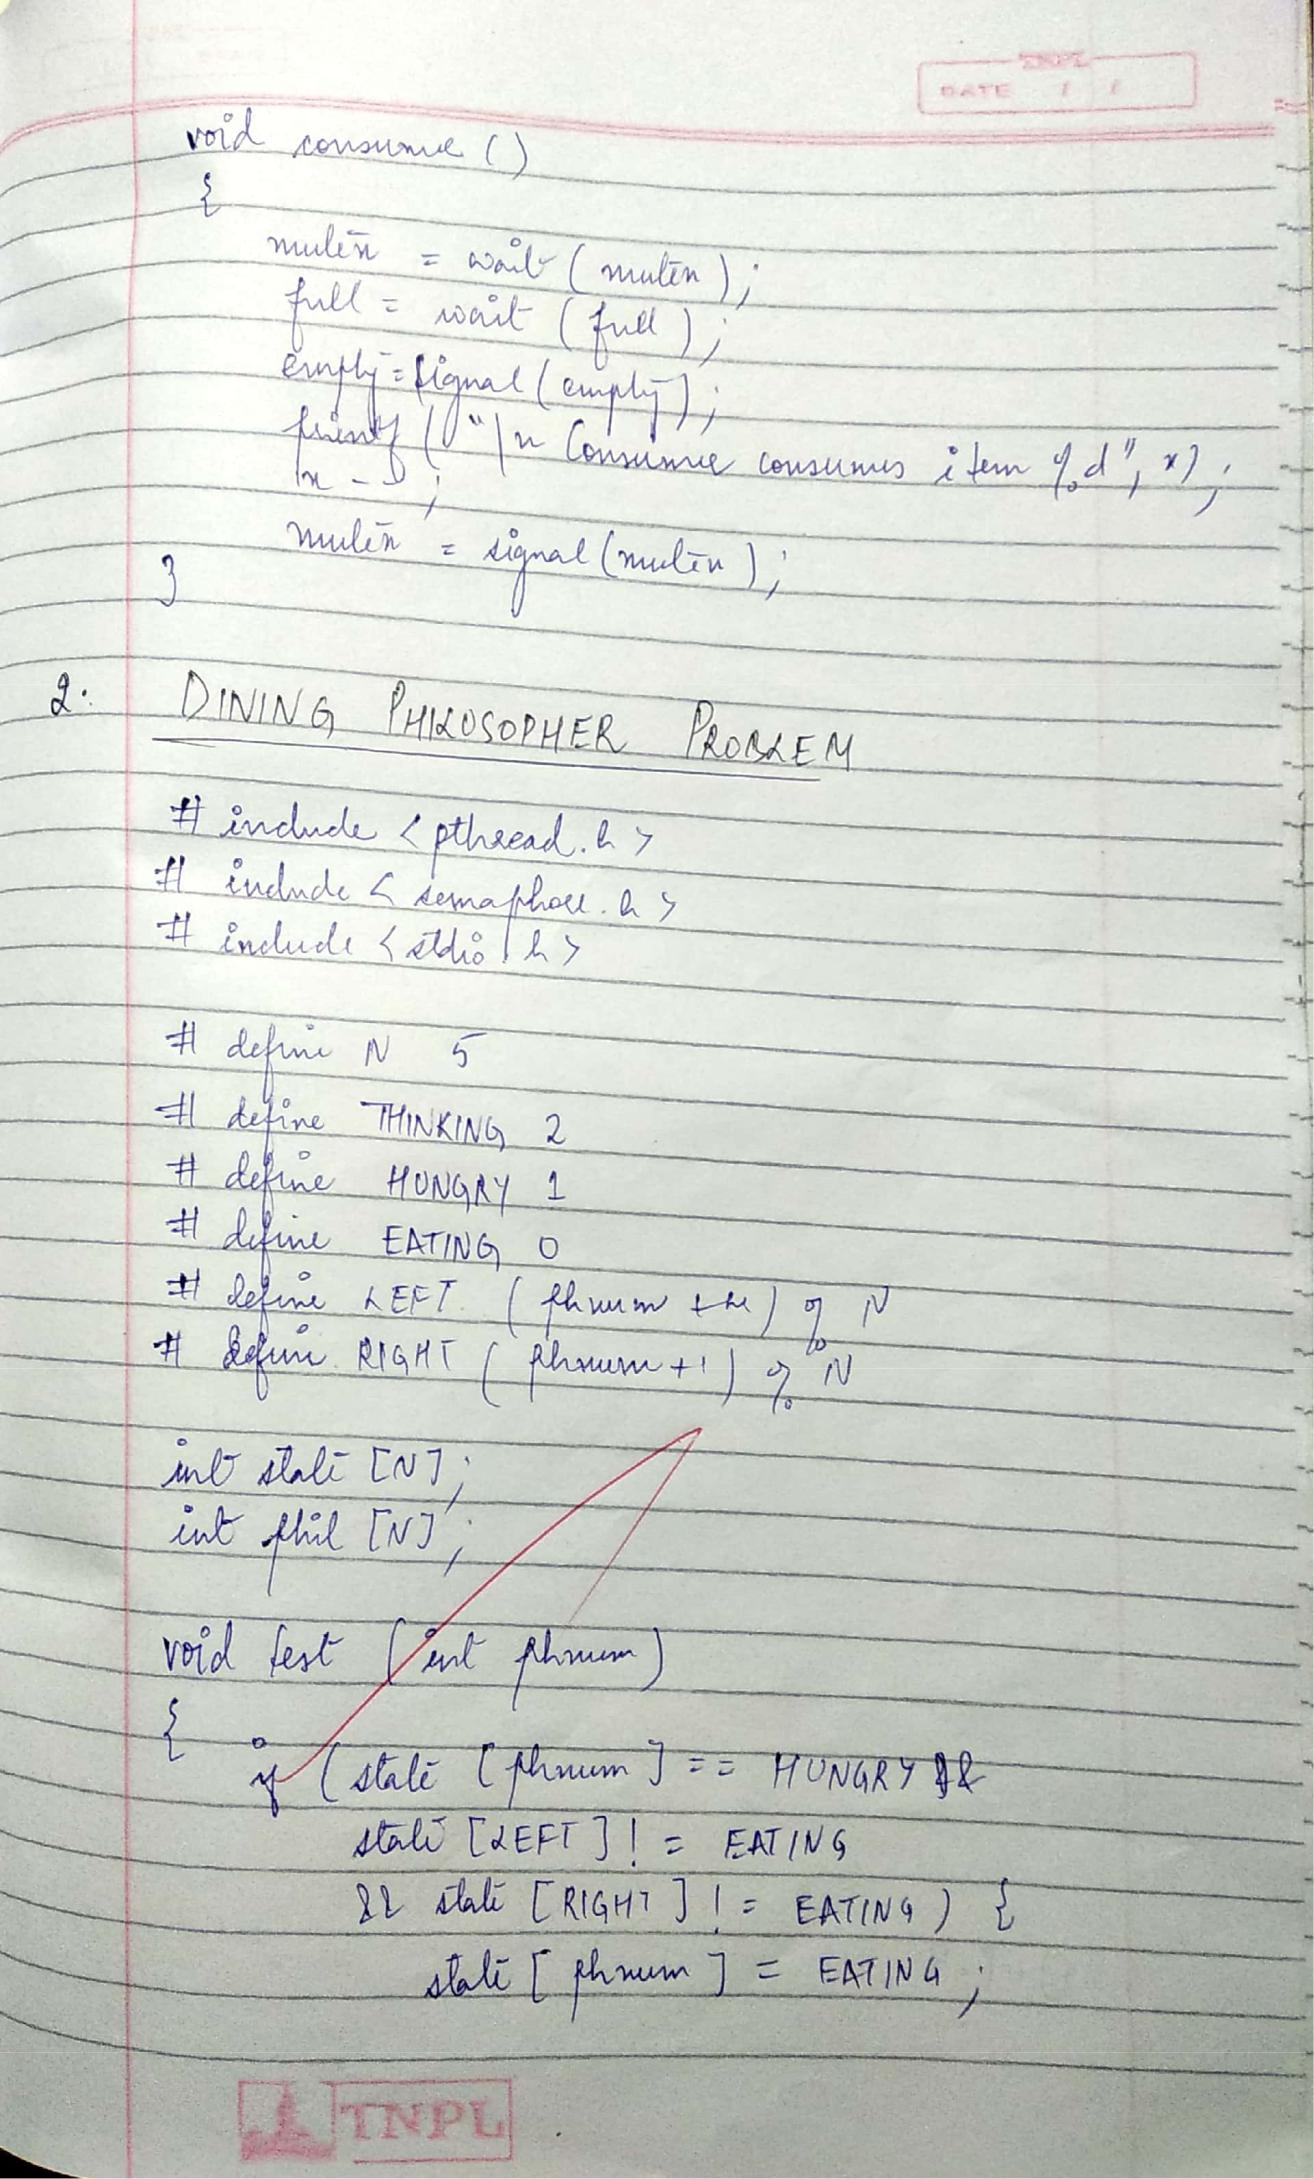 TNPL
DATE / /
void consume ()
{
mutex = wait (mutex);
full = wait (full);
empty = signal (empty);
printf ("\n Consumer consumes item %d", x);
x--;
mutex = signal (mutex);
}
2. DINING PHILOSOPHER PROBLEM
# include < pthread.h >
# include < semaphore.h >
# include < stdio.h >
# define N 5
# define THINKING 2
# define HUNGRY 1
# define EATING 0
# define LEFT ( phnum +4 ) % N
# define RIGHT ( phnum +1 ) % N
int state [N];
int phil [N];
void test (int phnum)
{
if (state [ phnum ] == HUNGRY &&
state [LEFT] != EATING
&& state [RIGHT] != EATING) {
state [ phnum ] = EATING ;
TNPL